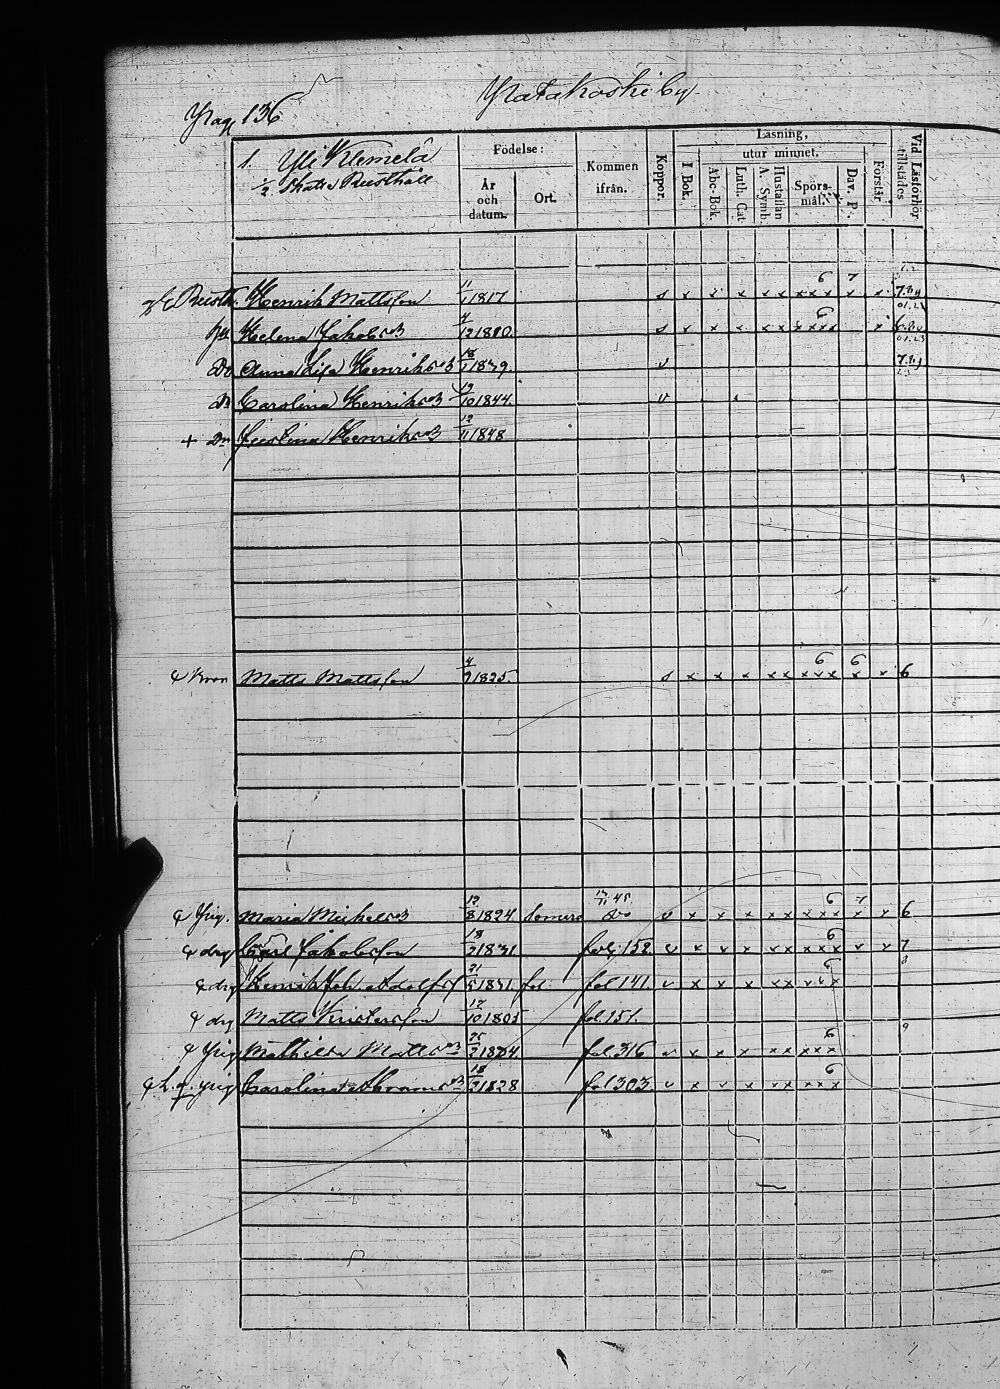 Pag 136
Matakoski by.
1. Yli Klemelä
1/2 Skatte Rusthåll
Födelse:
År och datum.
Ort.
Kommen ifrån.
Koppor.
Läsning,
I Bok.
utur minnet.
Abc-Bok.
Luth. Cat.
Hustaflan A. Symb.
Spörs-mål.
Dav. Ps.
Förstår
Vid Läsförhör tillstädes
Rusth. Henrik Mattsson 11/1 1817 s x x x x x x x x 6 7 x x
hu Helena Jakobsd 4/12 1820. s x x x x x x x x 6 x
Dr Anna Lisa Henriksd 18/1 1839. v
Dr Carolina Henriksd 19/10 1844 v
+ Dr Justina Henriksd 12/11 1848
Bron Matts Mattsson 4/2 1825. s x x x x x x x x 6 6 x x 6
Pig. Maria Michelsd 12/8 1824 Somero v x x x x x x x x 6 7 x x 6
drg Carl Jakobsson 18/2 1831 folj. 152. v x x x x x x x x 6 x x 7
drg Henrik Joh. Adolfss 21/5 1831. fol 141. v x x x x x x x x 6
drg Matts Kristersson 17/10 1805 fol. 151.
Pig Mathilda Mattsd 25/2 1834 fol 316 v x x x x x x x x 6
Pig Carolina Abramsd 18/2 1828 fol 303 v x x x x x x x x 6